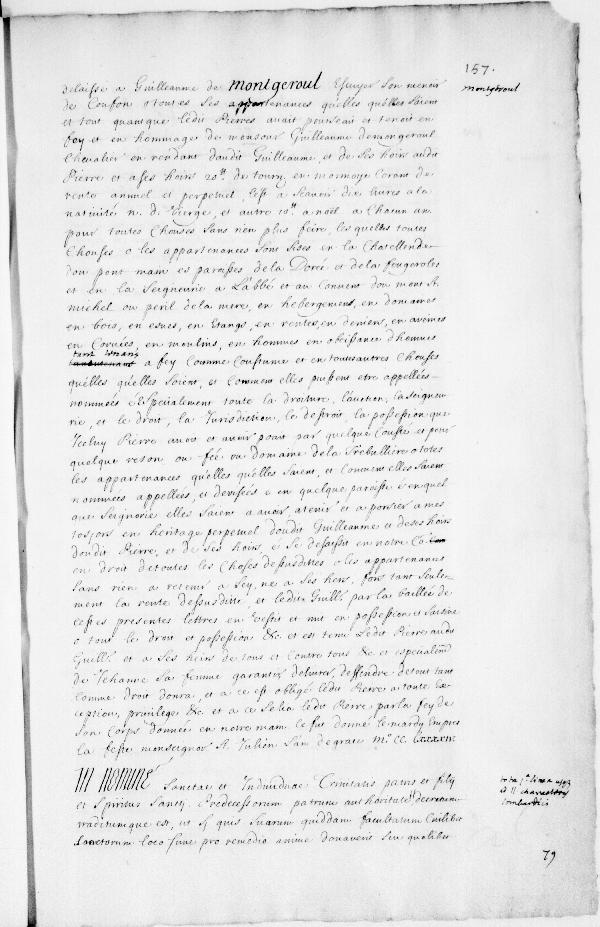 157.
delaisse a Guilleaume de montgeroul Escuyer son menoir
montgeroul
de Couson o toutes ses appartenances quelles quelles saient
et tout quanque ledit Pierres avait pourseait et tenoit en
fey et en hommage de monsour Guillaume demongeroul
Chevalier en rendant daudit Guilleaume, et de ses hoirs audit
Pierre et a ses hoirs 20tt. de tourn. en monnoye Corant de
rente annuel et perpetuel, Cest a scavoir dix livres a la
nativité n. d. Vierge, et autre 10tt. a noel a Chacun an
pour toutes Chouses sans rien plus feire, les quelles toutes
Chouses o les appartenances sont sises en la Chatellende
dou pont mam es paroisses de la Dorée et de la feugerolles
et en la Seigneurie a L'abbé et au Convent dou mont St.
michel ou peril de la mere, en hebergemens, en domaines
en bois, en esues, en Etangs, en rentes, en deniers, en avenes
en Corvées, en moulins, en hommes en obeissance d'hommes
tant
a fey Comme Coustume et en toutes autres Chouses
quélles quélles Soient, et Comment elles puissent etre appellées
nommées é Especialement toute la droiture, l'auction, la seigneu-
rie, et le droit, la Jurisdiction, le destroit, la possession que
Icelluy Pierre avoit et avoir poait par quelque Couste et pour
quelque reson ou fée ou domaine de la Trebulliere o totes
les appartenances quelles quélles Saient, et Comment elles Saient
nommées appellées, et devisées é en quelque paroisse é en quel
que Seignorie elles Saient a avoir, a tenir et a porster a mes
tosjors en heritage perpetuel doudit Guilleaume et de ses hoirs
doudit Pierre, et de ses hoirs é se desaissit en notre Co
en droit de toutes les Choses dessusdittes o les appartenances
sans rien a retenir a Sey, ne a Ses hers, fors tant seule-
ment la rente dessusditte, et ledit Guill. par la baillée de
cestes presentes lettres en Vestit et mit en possession et Saisine
o tout le droit et possession &c et est tenu Ledit Pierre audit
Guill. et a Ses hoirs de tous et Contre tous &c et espécialm.
de Jehanne Sa femme garantir, delivrer, deffendre de tout tant
Comme droit donra, et a ce est obligé ledit Pierre a toute ex-
ception, privilege &c et a ce Se lia ledit Pierre par la fey de
Son Corps donnée en notre main. Ce fut donné le mardy empres
la feste monseignor St. Julien Lan de grace M. CC.
In nomine Sanctae et Individuae Trinitatis patris et filij
tota
et Spiritus Sancti. Predecessorum patrum authoritate decretum
characteri
traditumque est, ut Si quis Suarum quiddam facultatum Cuilibet
lombardici
Sanctorum loco sive pro remedio animae donaverit Seu quolibet
79